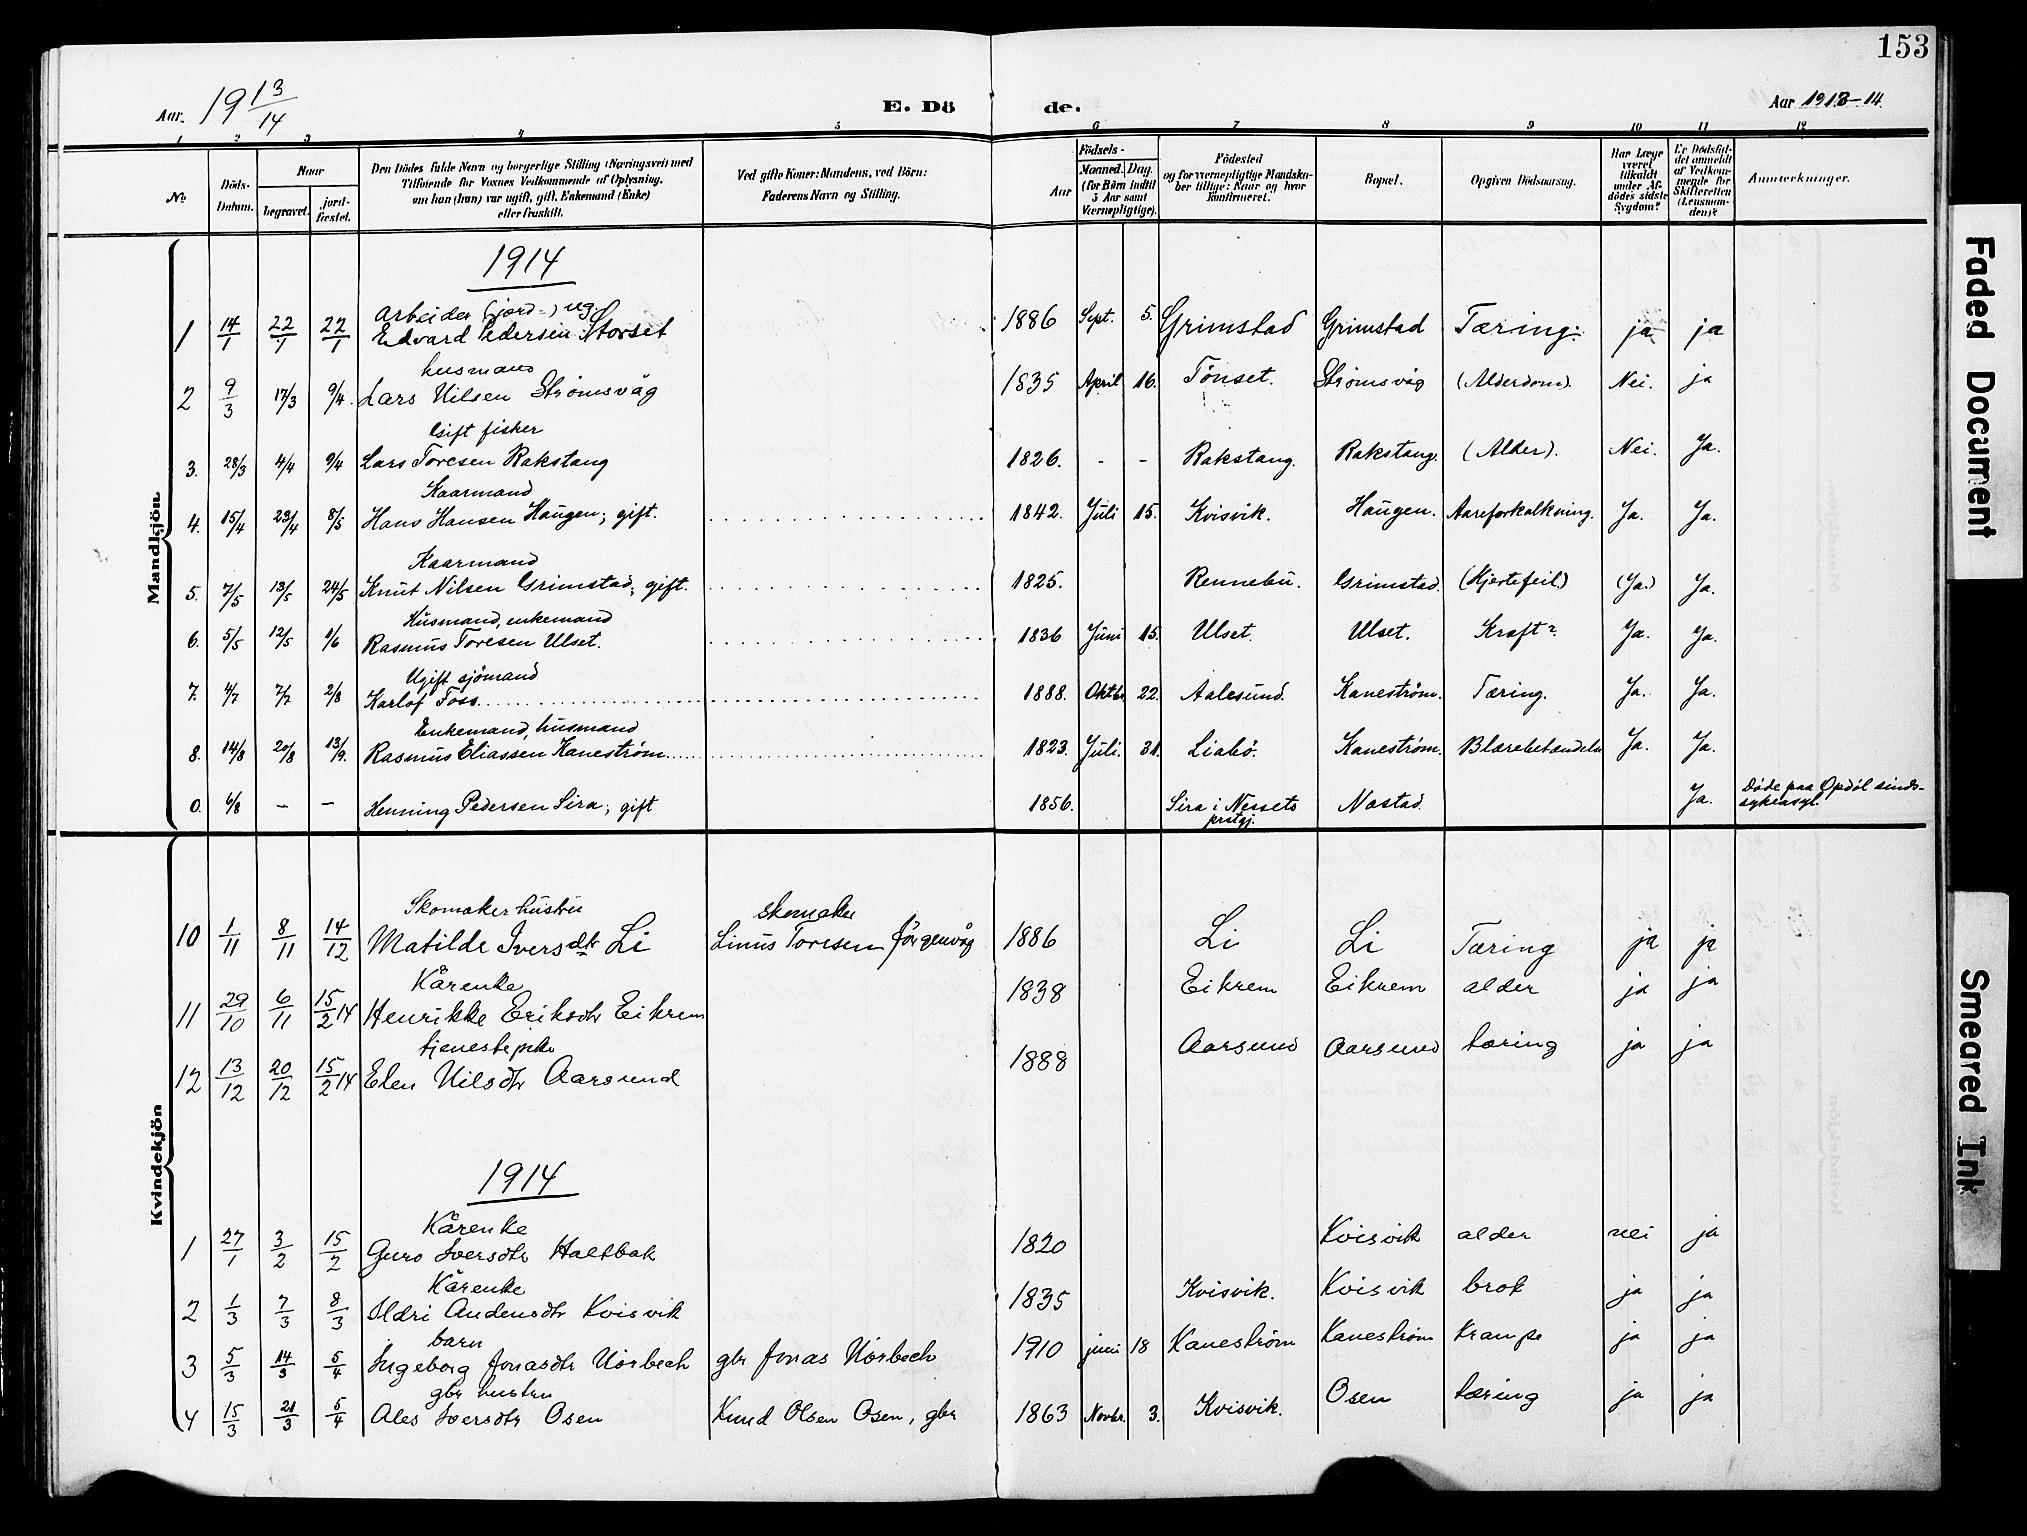 153
Aar. 1913/14 E. Dö de. Aar 1913-14.
1 2 3 4 5 6 7 8 9 10 11 12
No. Döds-Datum. Naar begravet. jordfæstet. Den Dödes fulde Navn og borgerlige Stilling (Næringsvei) med Tilföiende for Voxnes Vedkommende af Oplysning, om han (hun) var ugift, gift, Enkemand (Enke) eller fraskilt. Ved gifte Koner: Mandens, ved Börn: Faderens Navn og Stilling. Aar Födsels- Maaned. Dag. (for Börn indtil 5 Aar samt Værnepligtige). Födested og for værnepligtige Mandskaber tillige: Naar og hvor Konfirmeret. Bopæl. Opgiven Dödsaarsag. Har Læge været tilkaldt under Afdödes sidste Sygdom? Er Dödsfaldet anmeldt af Vedkommende for Skifteretten (Lensmanden)? Anmærkninger.
Mandkjön
1914
Arbeider (jord-) ug
1 14/1 22/1 22/1 Edvard Pedersen Storset 1886 Sept. 5. Grimstad Grimstad Tæring. ja ja
husmand
2 9/3 17/3 9/4. Lars Nilsen Strømsvåg 1835 April 16. Tönset. Strømsvåg (Alderdom). Nei. ja
Gift fisker
3. 28/3 4/4 9/4 Lars Toresen Rakstang 1826. - - Rakstang. Rakstang. (Alder). Nei. Ja.
Kaarmand
4. 15/4 23/4 8/5 Hans Hansen Haugen; gift. 1842. Juli 15. Kvisvik. Haugen. Aareforkalkning. Ja. Ja.
Kaarmand
5. 7/5 13/5 24/5 Knut Nilsen Grimstad; gift. 1825. Rennebu. Grimstad. (Hjertefeil) (Ja.) Ja.
Husmand, enkemand
6. 5/5 12/5 1/6 Rasmus Toresen Ulset. 1836 Juni 15. Ulset. Ulset. Kræft? Ja. Ja.
Ugift sjömand
7. 4/7 7/7 2/8 Karlof Foss 1888. Oktbr. 22. Aalesund. Kaneström. Tæring. Ja. Ja.
Enkemand, husmand
8. 14/8 20/8 13/9. Rasmus Eliassen Kaneström 1823. Juli. 31. Liabö. Kaneström. Blærebetændelse Ja. Ja.
0. 6/8 - - Henning Pedersen Sira; gift 1856. Sira i Nessets prstgj. Nastad. Ja. Døde paa Opdöl sindssykeasyl.
Kvindekjön
Skomaker hustru skomaker
10 1/11 8/11 14/12 Matilde Iversdtr Li Linus Toresen Jørgenvåg 1886 Li Li Tæring ja ja
Kårenke
11 29/10 6/11 15/2 14 Henrikke Eriksdtr Eikrem 1838 Eikrem Eikrem alder ja ja
tjenestepike
12 13/12 20/12 15/2 14 Elen Nilsdtr Aarsund 1888 Aarsund Aarsund tæring ja ja
1914
Kårenke
1 27/1 3/2 15/2 Guro Iversdtr Haltbak 1820 Kvisvik alder nei ja
Kårenke
2 1/3 7/3 8/3 Ildri Andersdtr Kvisvik 1835 Kvisvik. Kvisvik brok ja ja
barn
3 5/3 14/3 5/4 Ingeborg Jonasdtr Norbech gbr Jonas Norbech 1910 juni 18 Kaneström Kaneström Krampe ja ja
gbr hustru
4 15/3 21/3 5/4 Ales Iversdtr Osen Knud Olsen Osen, gbr 1863 Novbr. 3. Kvisvik. Osen tæring ja ja
Faded Document
Smeared Ink